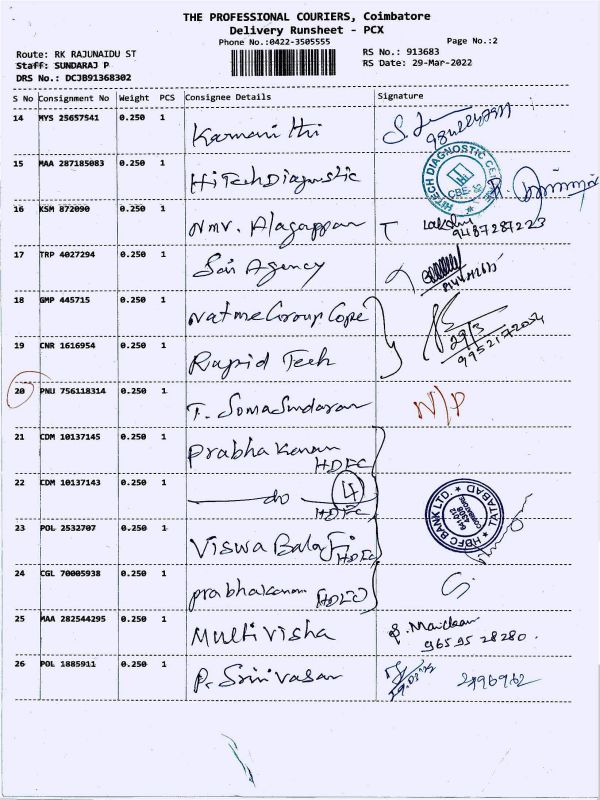 THE PROFESSIONAL COURIERS, Coimbatore
Delivery Runsheet - PCX
Phone No.:0422-3505555
Page No.:2
Route: RK RAJUNAIDU ST
RS No.: 913683
Staff: SUNDARAJ P
RS Date: 29-Mar-2022
DRS No.: DCJB91368302
S No Consignment No Weight PCS Consignee Details Signature
14 MYS 25657541 0.250 1
15 MAA 287185083 0.250 1 HiTech Diagnostic
HITECH DIAGNOSTIC CBE
16 KSM 872090 0.250 1 Alagappan
9487287223
17 TRP 4027294 0.250 1 Sai Agency
18 GMP 445715 0.250 1
19 CNR 1616954 0.250 1 Rapid Tech
29/3
9952172024
20 PNU 756118314 0.250 1 T. Somasundaran N/P
21 CDM 10137145 0.250 1 Prabhakaran
HDFC
22 CDM 10137143 0.250 1 do 4
HDFC
HDFC BANK LTD. TATABAD
COIMBATORE
641 012
23 POL 2532707 0.250 1 Viswa Balaji HDFC
24 CGL 70005938 0.250 1 prabhakaran HDFC
25 MAA 282544295 0.250 1 Multivisha
96595 28280.
26 POL 1885911 0.250 1 P. Srinivasan